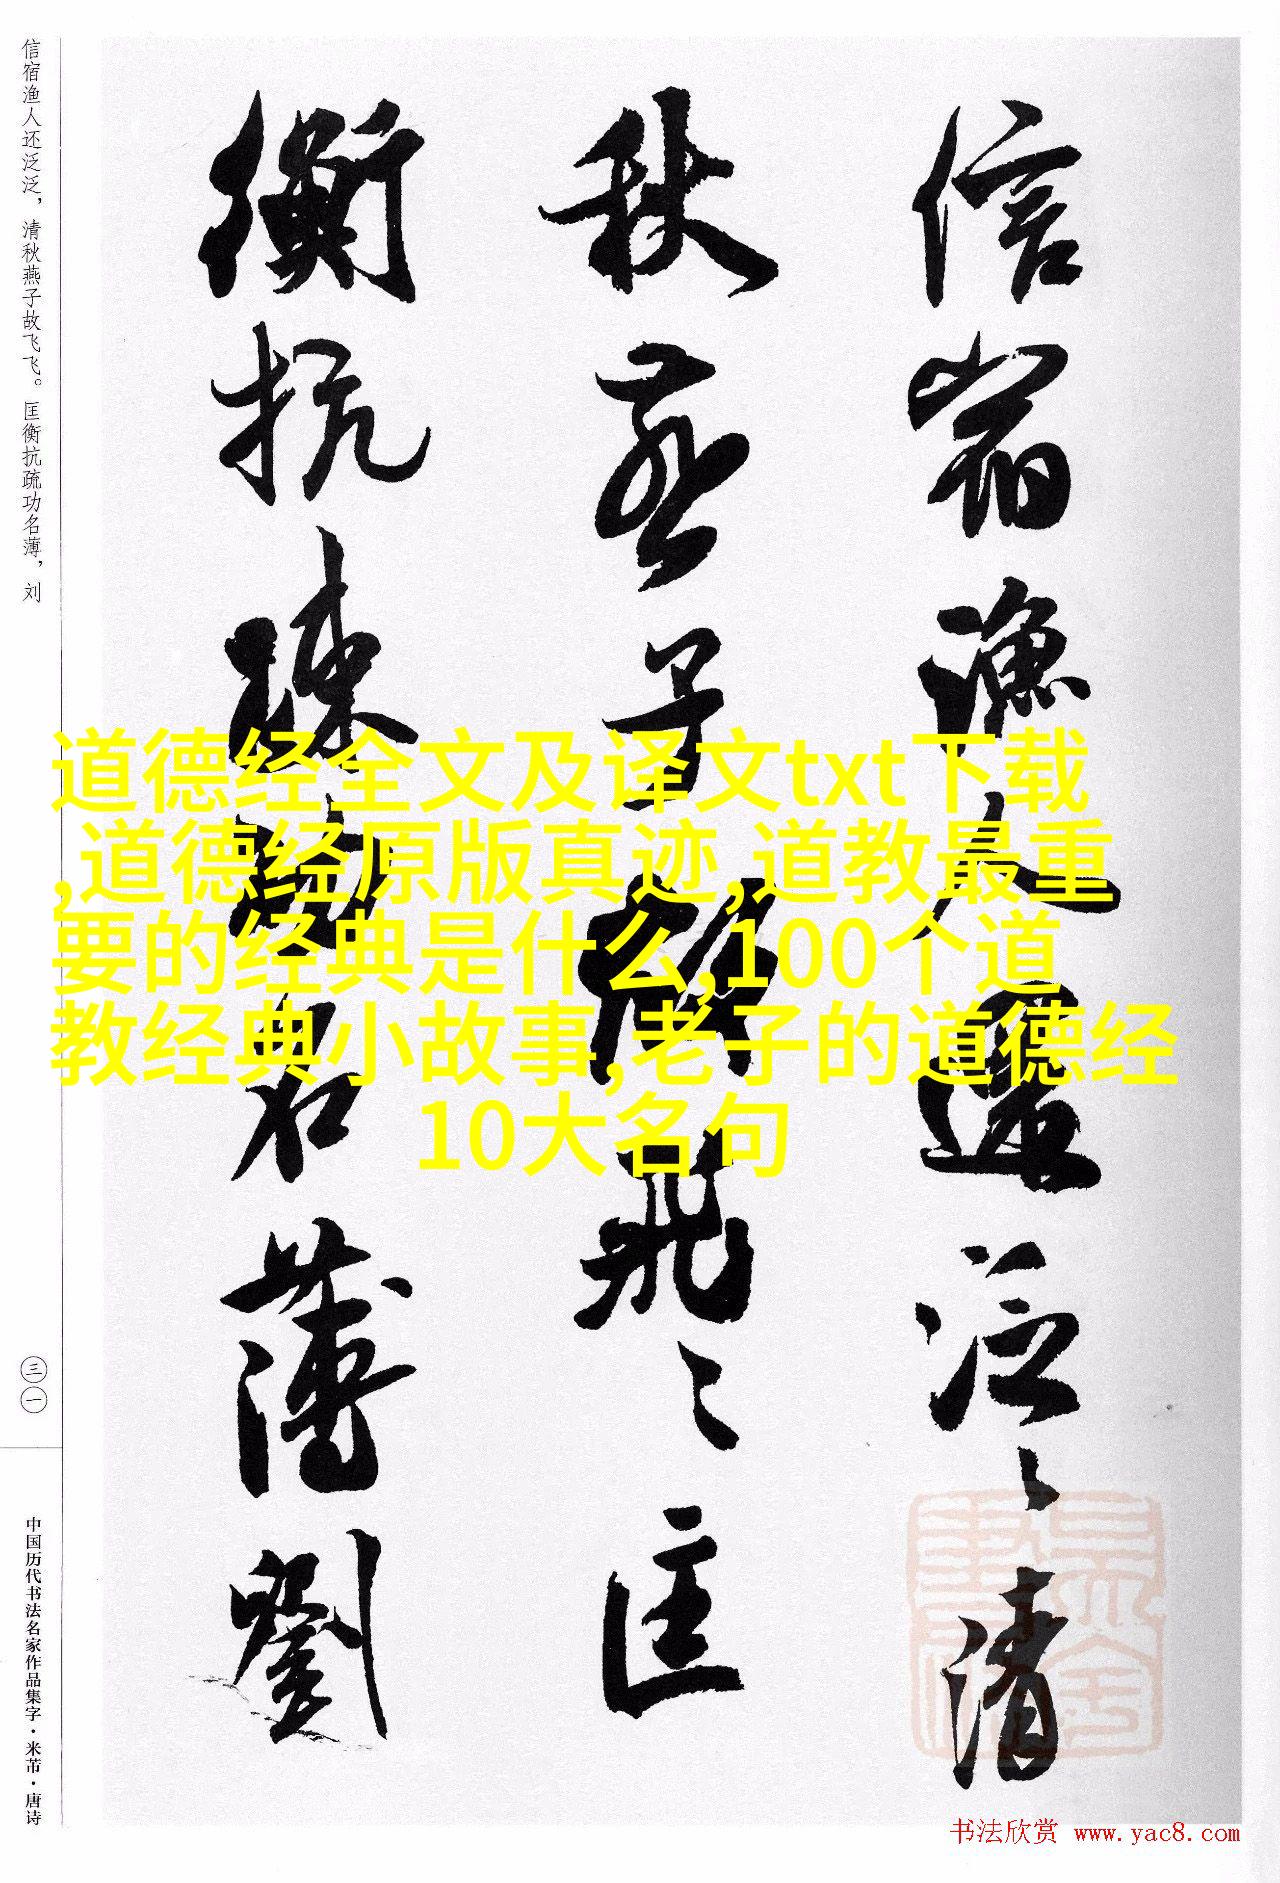 信宿渔人还泛泛，清秋燕子故飞飞。匡衡抗疏功名薄，刘
三一
中国历代书法名家作品集字·米芾·唐诗
信宿漁人還泛〻清
秋燕子故飛〻匡
衡抗疏功名薄劉
道德经全文及译文txt下载
,道德经原版真迹,道教最重
要的经典是什么,100个道
教经典小故事,老子的道德经
10大名句
书法欣赏 www.yac8.com